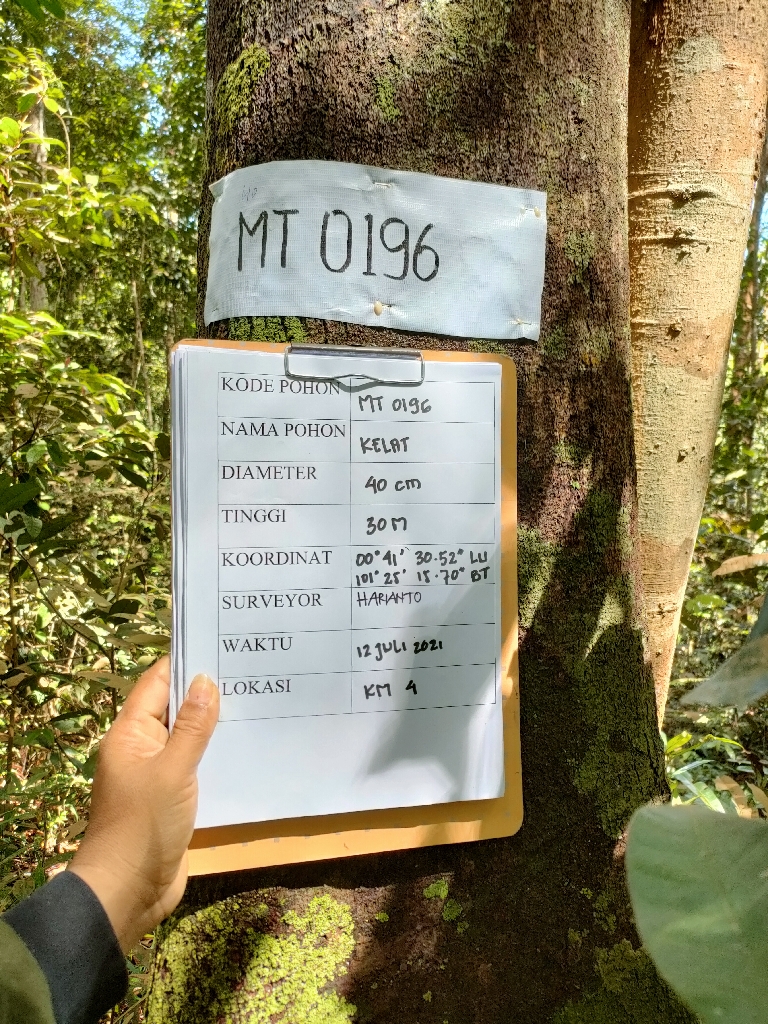 MT 0196
KODE POHON MT 0196
NAMA POHON KELAT
DIAMETER 40 cm
TINGGI 30 M
KOORDINAT 00° 41' 30.52" LU
101° 25' 15.70" BT
SURVEYOR HARIANTO
WAKTU 12 JULI 2021
LOKASI KM 4